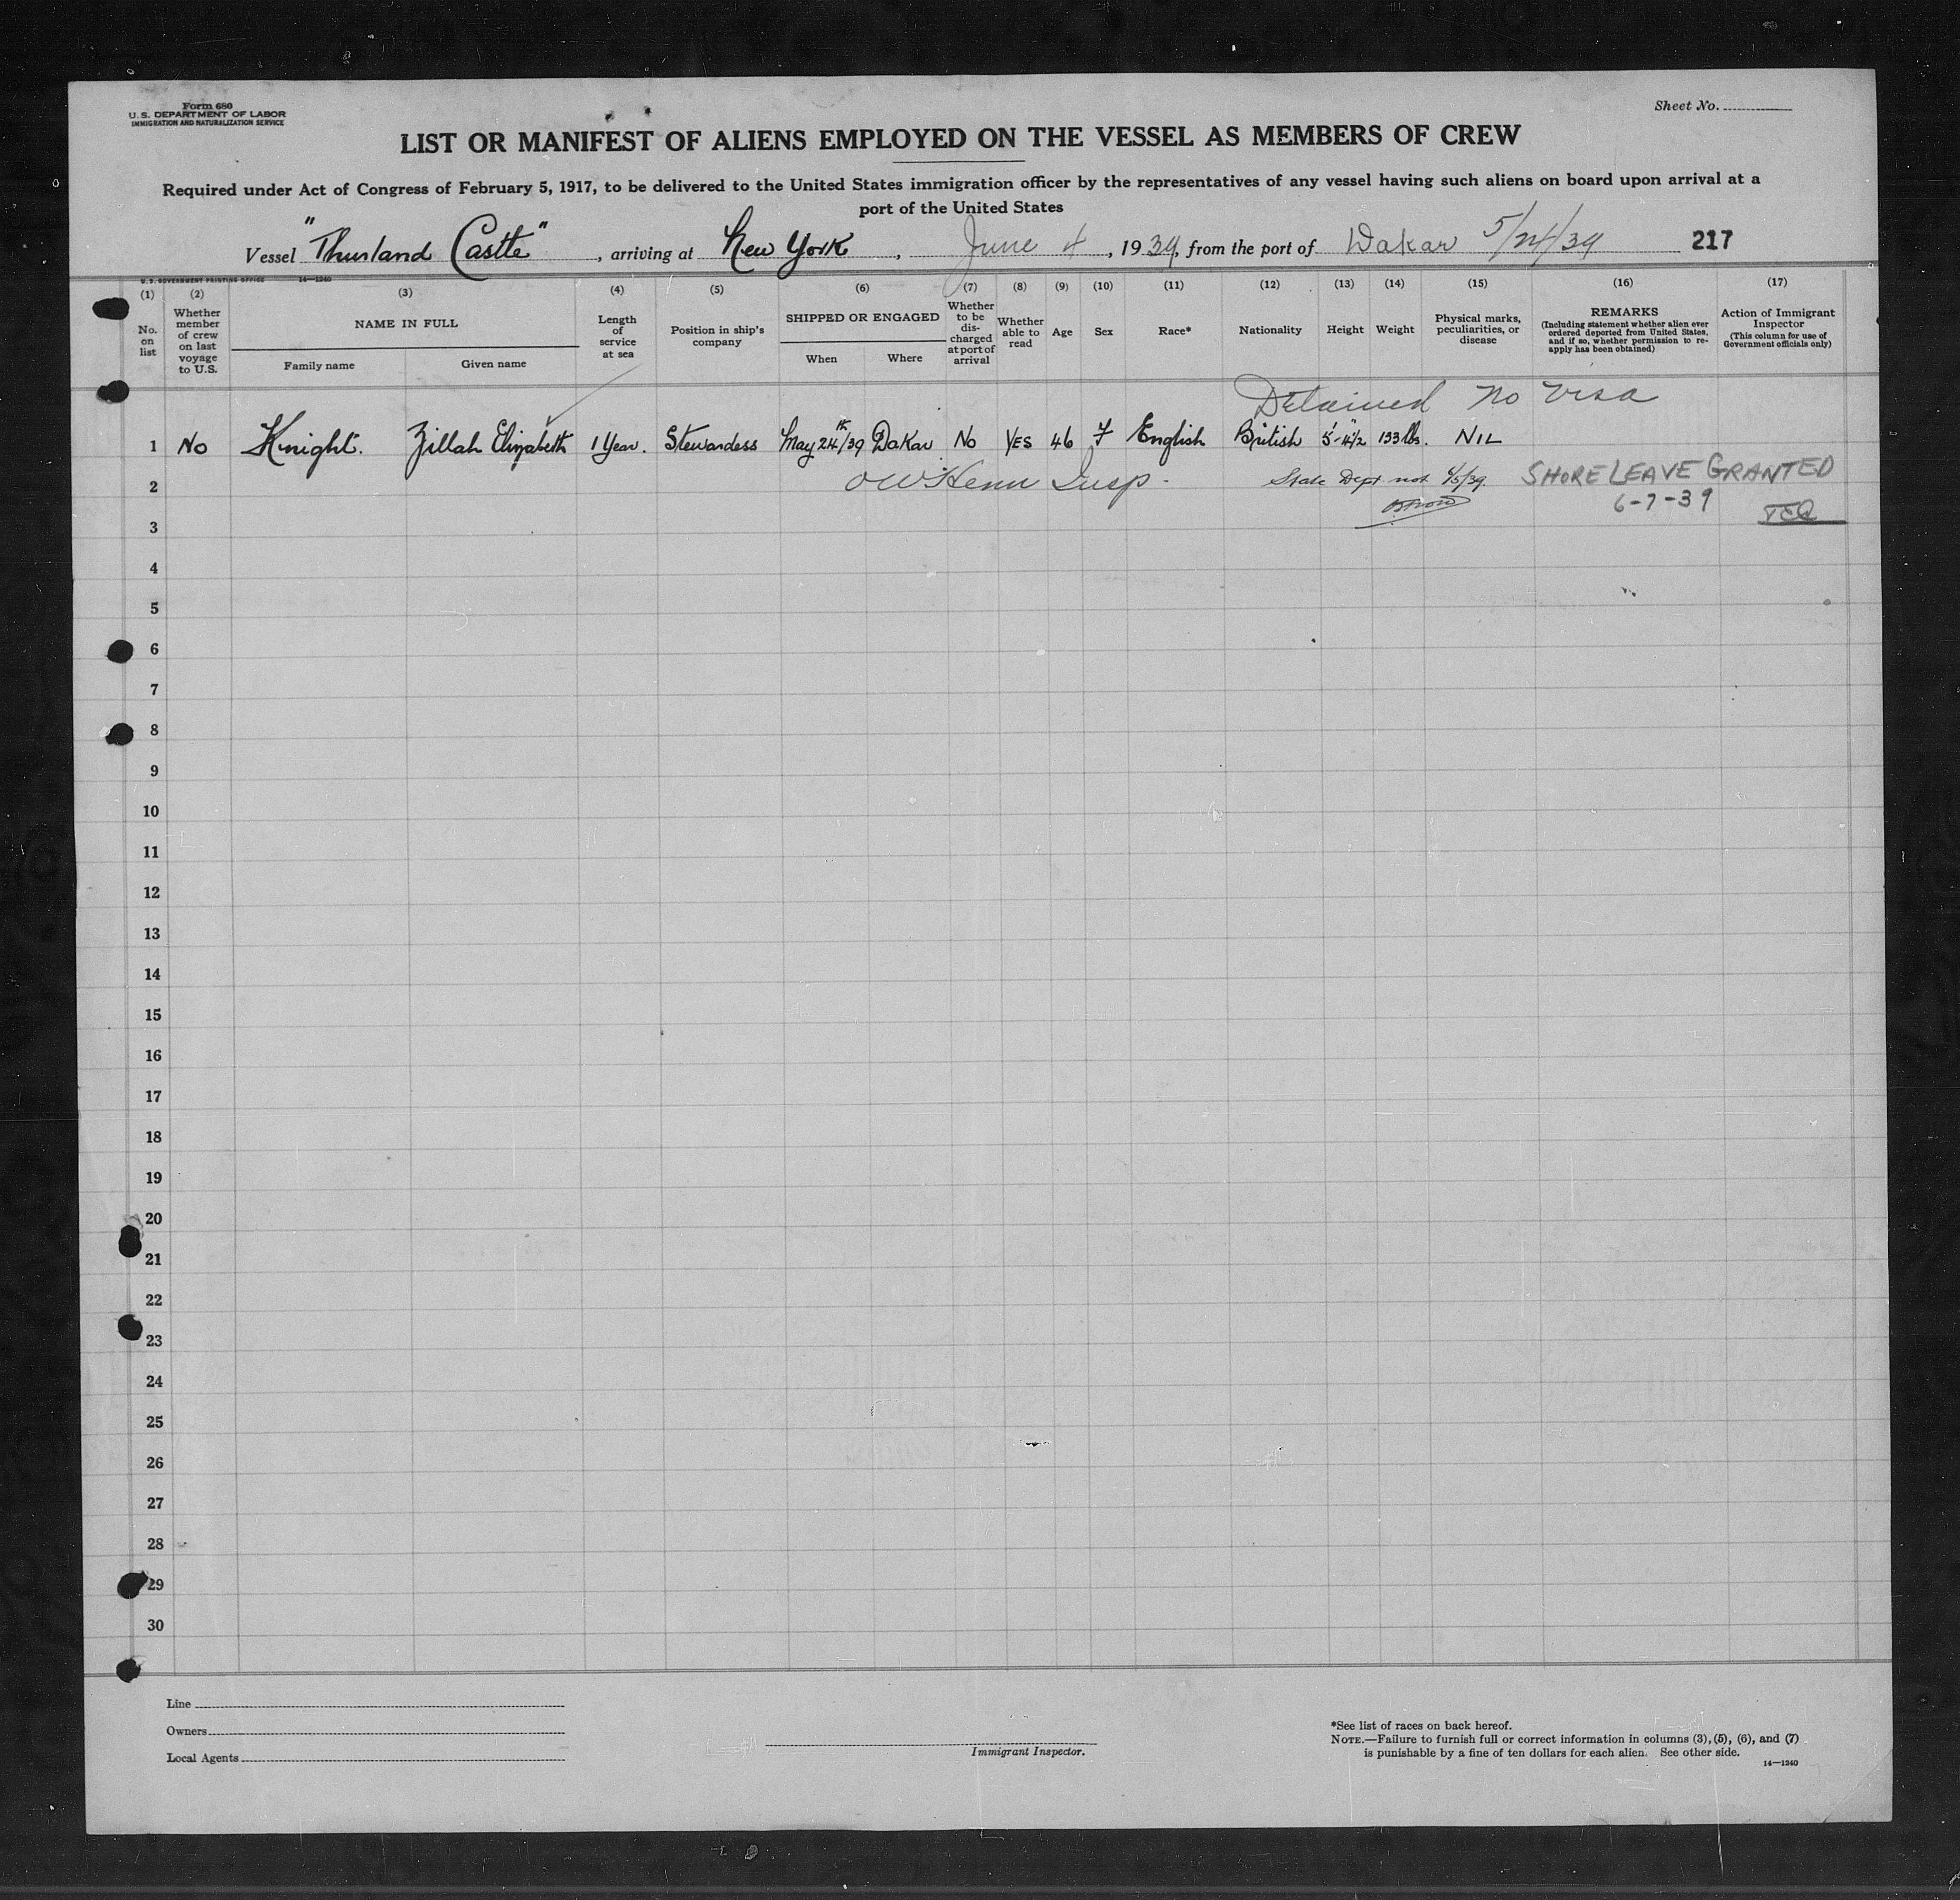 Form 680
U. S. DEPARTMENT OF LABOR
IMMIGRATION AND NATURALIZATION SERVICE
Sheet No.
LIST OR MANIFEST OF ALIENS EMPLOYED ON THE VESSEL AS MEMBERS OF CREW
Required under Act of Congress of February 5, 1917, to be delivered to the United States immigration officer by the representatives of any vessel having such aliens on board upon arrival at a
port of the United States
Vessel "Thurland Castle", arriving at New York, June 4, 1939, from the port of Dakar 5/24/39 217
U. S. GOVERNMENT PRINTING OFFICE 14—1240
(1) (2) (3) (4) (5) (6) (7) (8) (9) (10) (11) (12) (13) (14) (15) (16) (17)
No. on list
Whether member of crew on last voyage to U.S.
NAME IN FULL
Family name
Given name
Length of service at sea
Position in ship's company
SHIPPED OR ENGAGED
When
Where
Whether to be discharged at port of arrival
Whether able to read
Age
Sex
Race*
Nationality
Height
Weight
Physical marks, peculiarities, or disease
REMARKS
(Including statement whether alien ever ordered deported from United States, and if so, whether permission to re-apply has been obtained)
Action of Immigrant Inspector
(This column for use of Government officials only)
Detained no visa
1 No Knight. Zillah Elizabeth 1 Year. Stewardess May 24th/39 Dakar No YES 46 F English British 5'-4"½ 133 lbs. NIL
2 Insp. State Dept not 6/5/39. SHORE LEAVE GRANTED
6-7-39
3
4
5
6
7
8
9
10
11
12
13
14
15
16
17
18
19
20
21
22
23
24
25
26
27
28
29
30
Line
Owners
Local Agents
Immigrant Inspector.
*See list of races on back hereof.
NOTE.—Failure to furnish full or correct information in columns (3), (5), (6), and (7)
is punishable by a fine of ten dollars for each alien. See other side.
14—1240